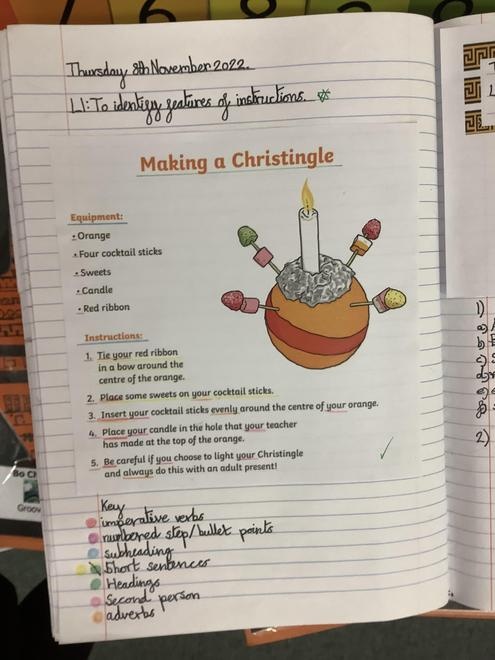 Thursday 8th November 2022.
LI: To identify features of instructions.
Making a Christingle
Equipment:
• Orange
• Four cocktail sticks
• Sweets
• Candle
• Red ribbon
Instructions:
1. Tie your red ribbon
in a bow around the
centre of the orange.
2. Place some sweets on your cocktail sticks.
3. Insert your cocktail sticks evenly around the centre of your orange.
4. Place your candle in the hole that your teacher
has made at the top of the orange.
5. Be careful if you choose to light your Christingle
and always do this with an adult present!
Key
imperative verbs
numbered step/bullet points
subheading
Short sentences
Headings
Second person
adverbs
1)
a)
b)
c)
2)